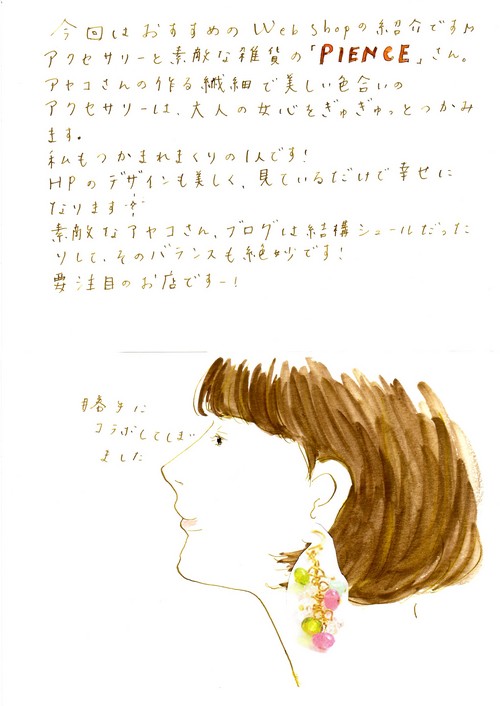 今回はおすすめのWeb shopの紹介です♪
アクセサリーと素敵な雑貨の「PIENCE」さん。
アヤコさんの作る繊細で美しい色合いの
アクセサリーは、大人の女心をぎゅぎゅっとつかみ
ます。
私もつかまれまくりの1人です!
HPのデザインも美しく、見ているだけで幸せに
なります
素敵なアヤコさん、ブログは結構シュールだった
りして、そのバランスも絶妙です!
要注目のお店ですー!
勝手に
コラボしてしまい
ました